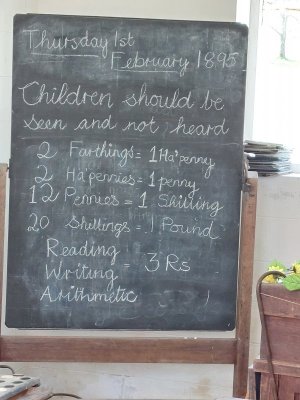 Thursday 1st
February 1895
Children should be
seen and not heard
2 Farthings = 1 Ha'penny
2 Ha'pennies = 1 penny
12 Pennies = 1 Shilling
20 Shillings = 1 Pound
Reading
Writing = 3 Rs
Arithmetic